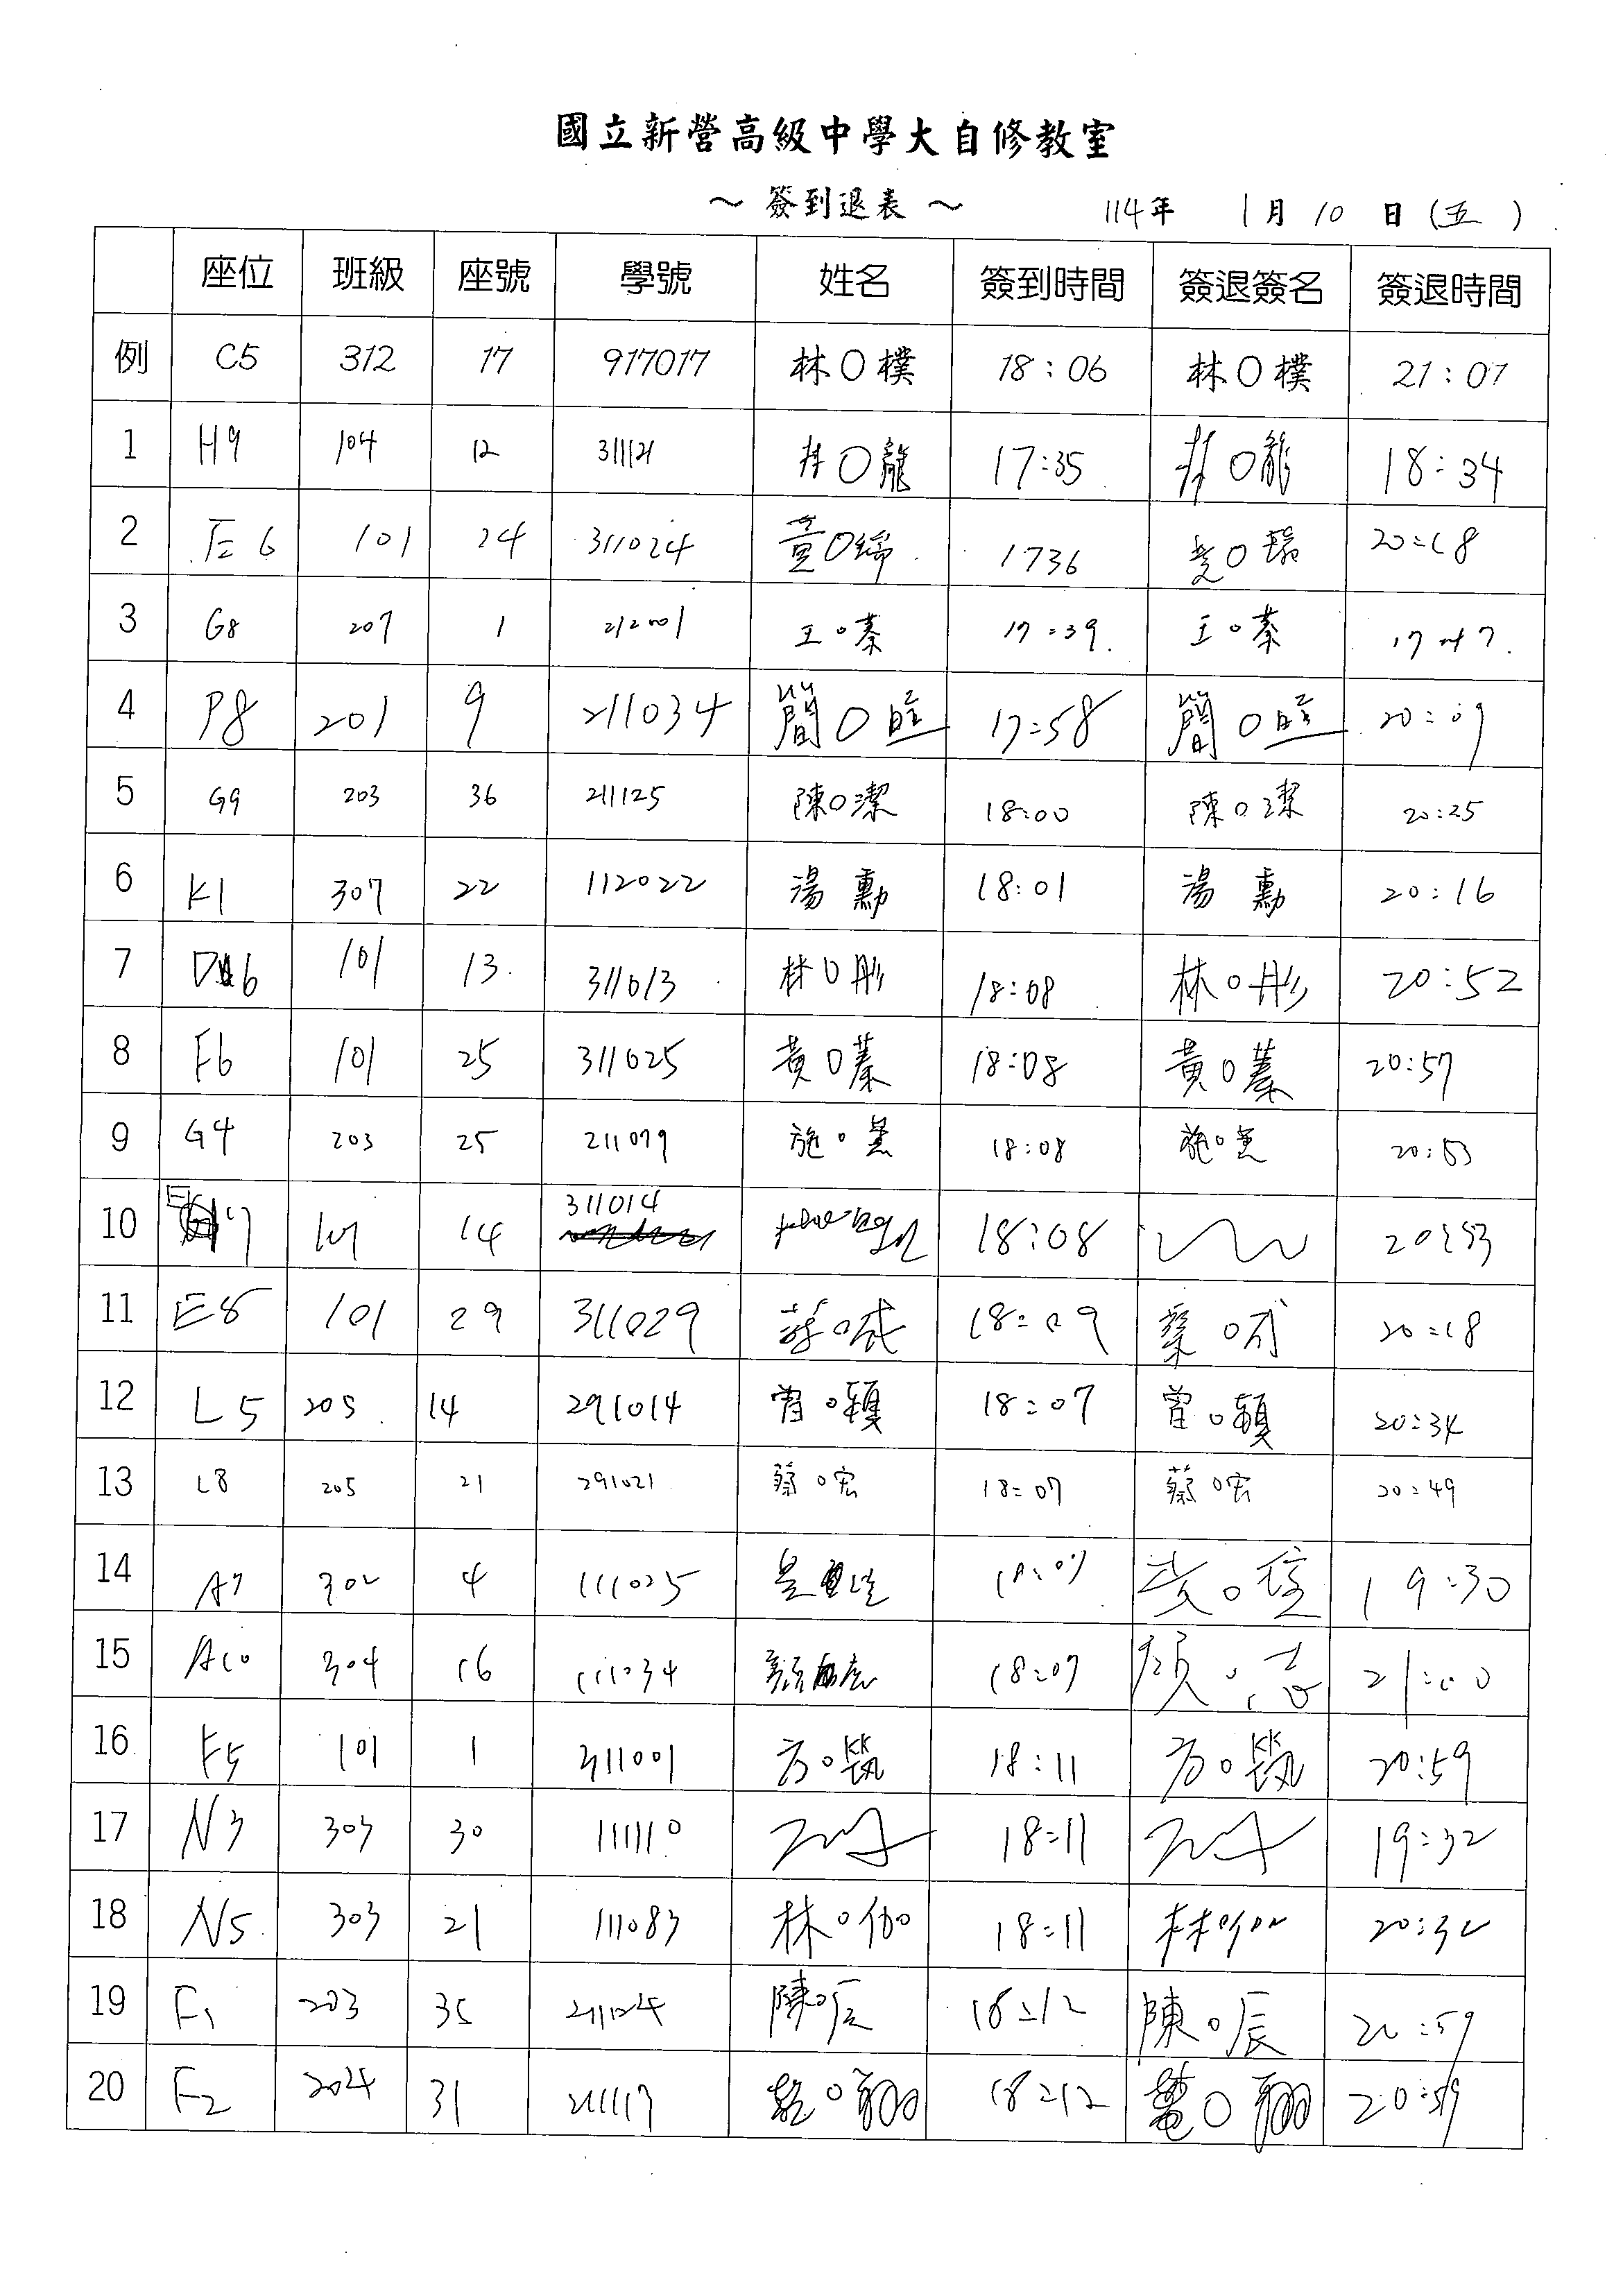 國立新營高級中學大自修教室
～ 簽到退表 ～ 114年 1月 10 日 (五)
座位 班級 座號 學號 姓名 簽到時間 簽退簽名 簽退時間
例 C5 312 17 917017 林O樸 18:06 林O樸 21:07
1 H9 104 12 311121 林O龍 17:35 林O龍 18:34
2 E6 101 24 311024 黃O 1736 黃O 20:18
3 G8 207 1 212001 王O蓁 17:39. 王O蓁 17:47.
4 P8 201 9 211034 簡O 17:58 簡O 20:09
5 G9 203 36 211125 陳O潔 18:00 陳O潔 20:25
6 K1 307 22 112022 湯 勳 18:01 湯 勳 20:16
7 D6 101 13. 311013 林O彤 18:08 林O彤 20:52
8 F6 101 25 311025 黃O蓁 18:08 黃O蓁 20:57
9 G4 203 25 211079 施O 18:08 施O 20:53
10 101 14 311014 18:08 20:53
11 E8 101 29 311029 18:09 20:18
12 L5 205 14 291014 曾O穎 18:07 曾O穎 20:34
13 L8 205 21 291021 蔡O宏 18:07 蔡O宏 20:49
14 A7 302 4 111025 18:07 19:30
15 A10 304 16 111034 顏 18:07 21:00
16 F5 101 1 311001 方O 18:11 方O 20:59
17 N3 303 30 111110 18:11 19:32
18 N5 303 21 111083 林O伽 18:11 林O伽 20:32
19 F1 203 35 211124 陳O辰 18:12 陳O辰 20:59
20 F2 204 31 211117 18:12 20:59